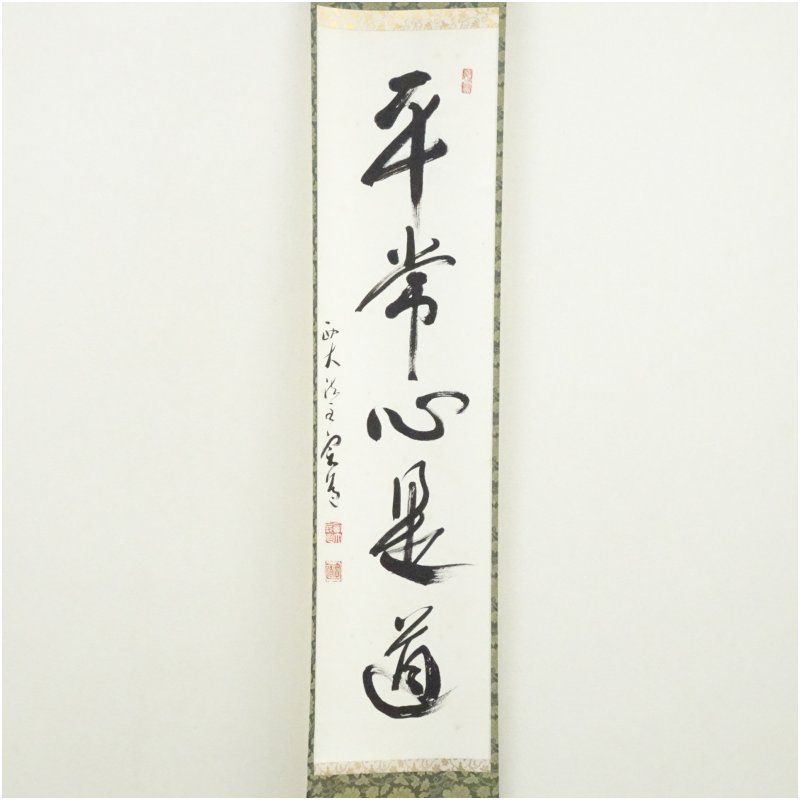 平常心是道
西大